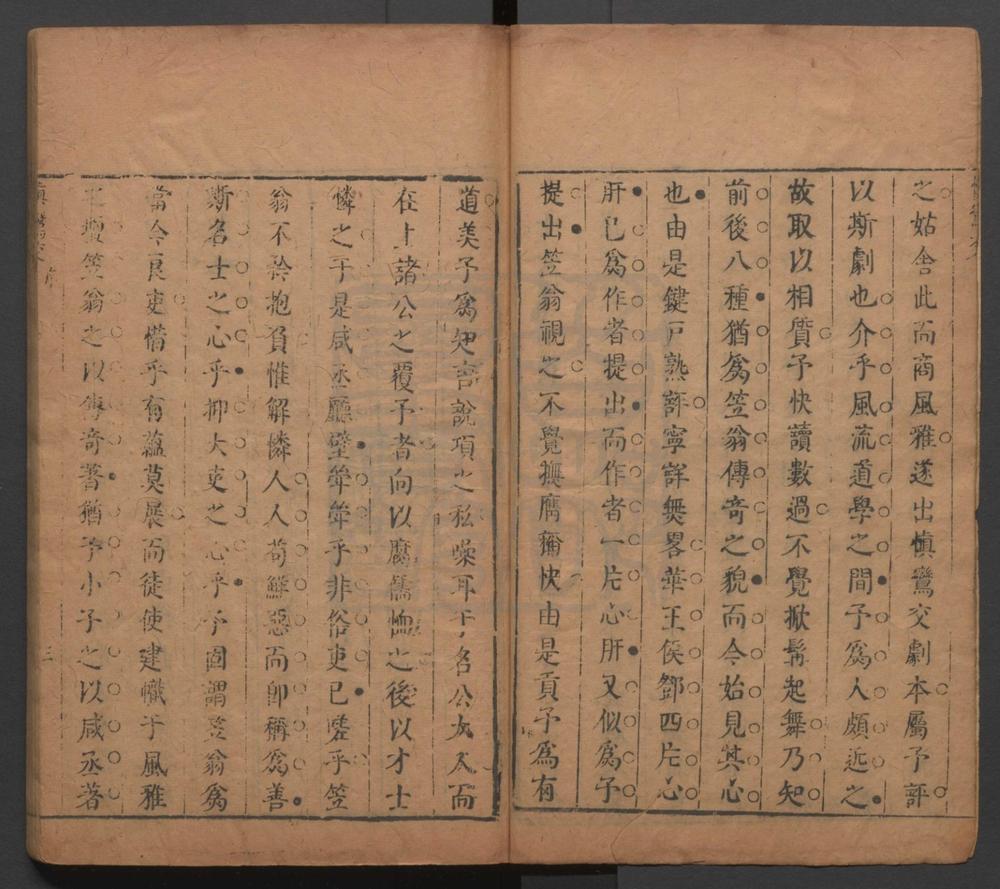 之姑舍此而商風雅遂出慎鸞交劇本屬予評
以斯劇也介乎風流道學之間予爲人頗近之
故取以相質予快讀數過不覺掀髯起舞乃知
前後八種猶爲笠翁傳奇之貌而今始見其心
也由是鍵戸熟評寧詳無畧華王侯鄧四片心
肝已爲作者提出而作者一片心肝又似爲予
提出笠翁視之不覺撫膺稱快由是貢予爲有
道美予爲知言說項之私噪耳于名公大人而
在上諸公之覆予者向以腐儒恤之後以才士
憐之于是咸丞廳壁犖犖乎非俗吏已嗟乎笠
翁不矜抱負惟解憐人人苟鮮惡而卽稱爲善
斯名士之心乎抑大吏之心乎予固謂笠翁爲
當今良吏惜乎有蘊莫展而徒使建幟于風雅
壇笠翁之以傳奇著猶予小子之以咸丞著